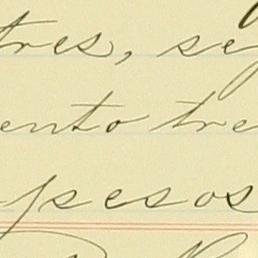 tres, se
ento tre
pesos